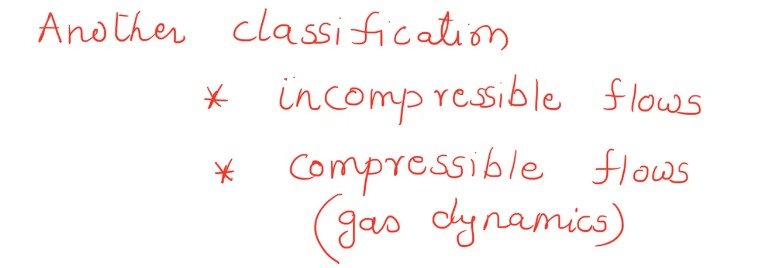 Another classification
* incompressible flows
* compressible flows
(gas dynamics)